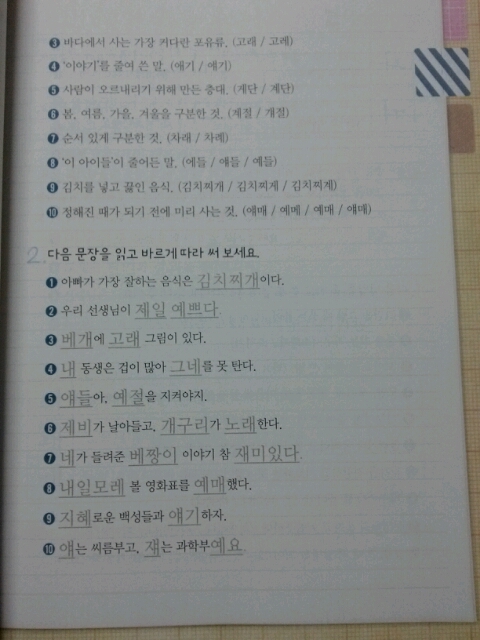 ❸ 바다에서 사는 가장 커다란 포유류. (고래 / 고레)
❹ '이야기'를 줄여 쓴 말. (얘기 / 예기)
❺ 사람이 오르내리기 위해 만든 층대. (게단 / 계단)
❻ 봄, 여름, 가을, 겨울을 구분한 것. (계절 / 개절)
❼ 순서 있게 구분한 것. (차래 / 차례)
❽ '이 아이들'이 줄어든 말. (에들 / 얘들 / 예들)
❾ 김치를 넣고 끓인 음식. (김치찌개 / 김치찌게 / 김치찌계)
❿ 정해진 때가 되기 전에 미리 사는 것. (애매 / 예메 / 예매 / 얘매)
2. 다음 문장을 읽고 바르게 따라 써 보세요.
❶ 아빠가 가장 잘하는 음식은 김치찌개이다.
❷ 우리 선생님이 제일 예쁘다.
❸ 베개에 고래 그림이 있다.
❹ 내 동생은 겁이 많아 그네를 못 탄다.
❺ 얘들아, 예절을 지켜야지.
❻ 제비가 날아들고, 개구리가 노래한다.
❼ 네가 들려준 베짱이 이야기 참 재미있다.
❽ 내일모레 볼 영화표를 예매했다.
❾ 지혜로운 백성들과 얘기하자.
❿ 얘는 씨름부고, 쟤는 과학부예요.